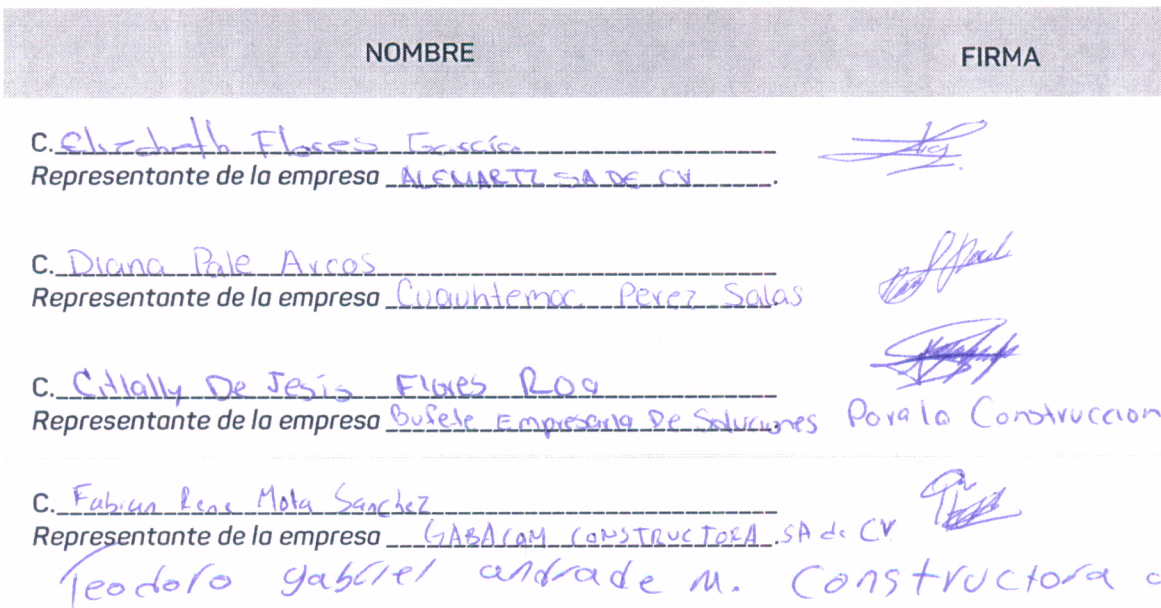 NOMBRE FIRMA
C. Elizabeth Flores García
Representante de la empresa ALEMARTZ SA DE CV.
C. Diana Pale Arcos
Representante de la empresa Cuauhtemoc Perez Salas
C. Citlally De Jesús Flores Roa
Representante de la empresa Bufete Empresaria De Soluciones Para la Construccion
C. Fabian Rene Mota Sanchez
Representante de la empresa GABACOM CONSTRUCTORA. SA de CV
Teodoro gabriel andrade M. Constructora